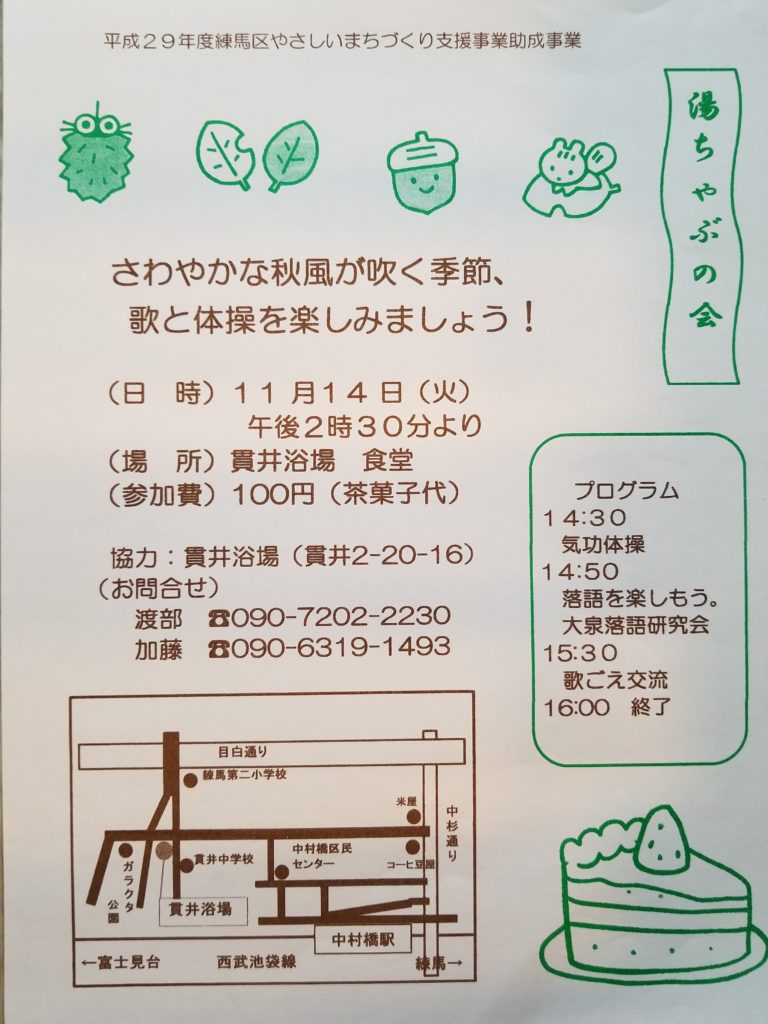 平成29年度練馬区やさしいまちづくり支援事業助成事業
湯ちゃぶの会
さわやかな秋風が吹く季節、
歌と体操を楽しみましょう！
（日　時）１１月１４日（火）
午後２時３０分より
（場　所）貫井浴場　食堂
（参加費）１００円（茶菓子代）
協力：貫井浴場（貫井2-20-16）
（お問合せ）
渡部　☎090-7202-2230
加藤　☎090-6319-1493
プログラム
１４:３０
気功体操
１４:５０
落語を楽しもう。
大泉落語研究会
１５:３０
歌ごえ交流
16:00　終了
目白通り
練馬第二小学校
中杉通り
米屋
貫井中学校
中村橋区民
センター
コーヒ豆屋
ガラクタ
公園
貫井浴場
中村橋駅
←富士見台
西武池袋線
練馬→